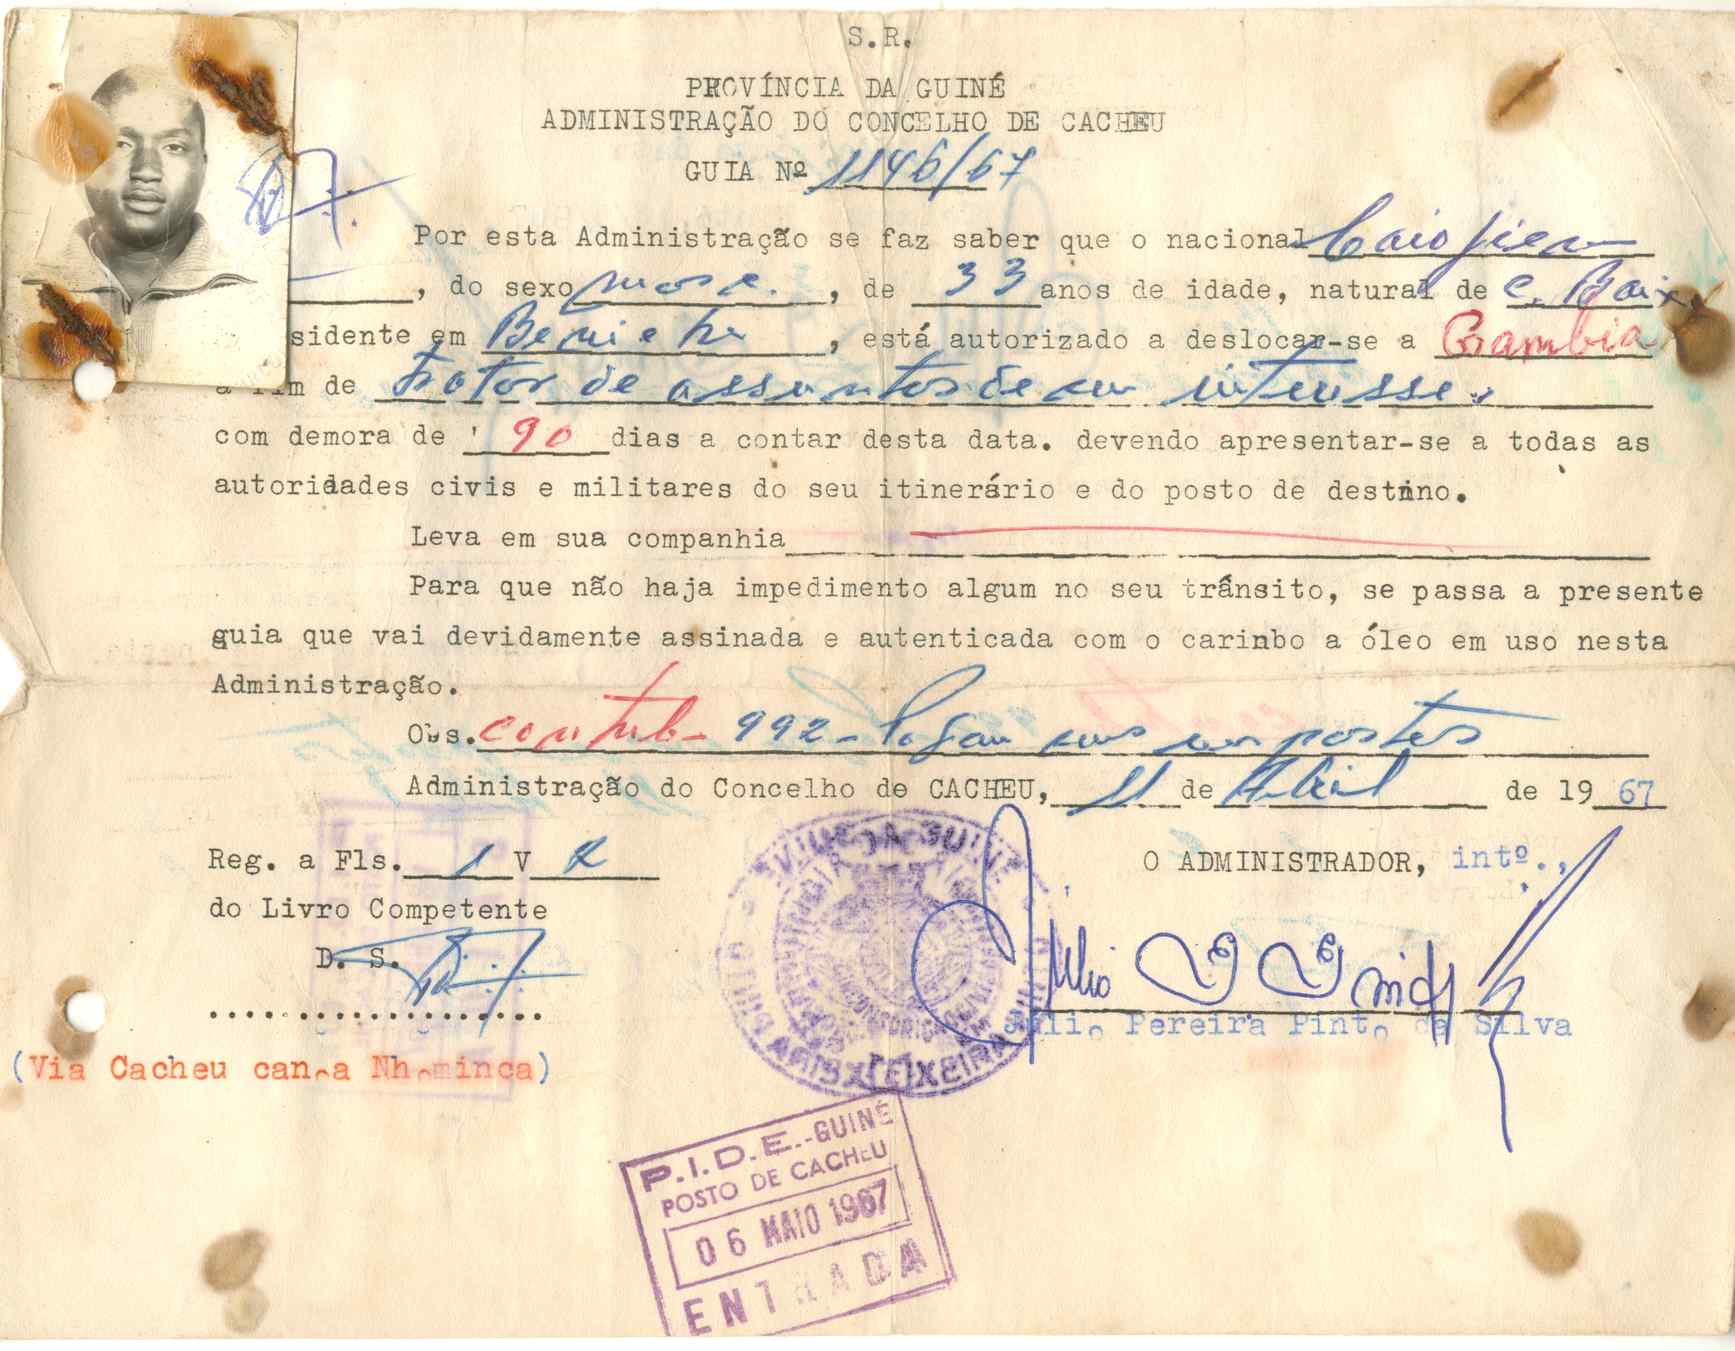 S.R.
PROVÍNCIA DA GUINÉ
ADMINISTRAÇÃO DO CONCELHO DE CACHEU
GUIA Nº 1146/67
Por esta Administração se faz saber que o nacional Caio
, do sexo masc. , de 33 anos de idade, natural de C. Baixo
sidente em , está autorizado a deslocar-se a Gambia
a fim de tratar de assuntos de seu interesse.
com demora de 90 dias a contar desta data. devendo apresentar-se a todas as
autoridades civis e militares do seu itinerário e do posto de destino.
Leva em sua companhia
Para que não haja impedimento algum no seu trânsito, se passa a presente
guia que vai devidamente assinada e autenticada com o carinbo a óleo em uso nesta
Administração.
Obs. contrib- 992 - Pagou seus impostos
Administração do Concelho de CACHEU, 11 de Abril de 1967
Reg. a Fls. 1 V
O ADMINISTRADOR, intº.,
do Livro Competente
D. S.
Júlio Pereira Pinto da Silva
(Via Cacheu canoa Nhominca)
P.I.D.E.-GUINÉ
POSTO DE CACHEU
06 MAIO 1967
ENTRADA